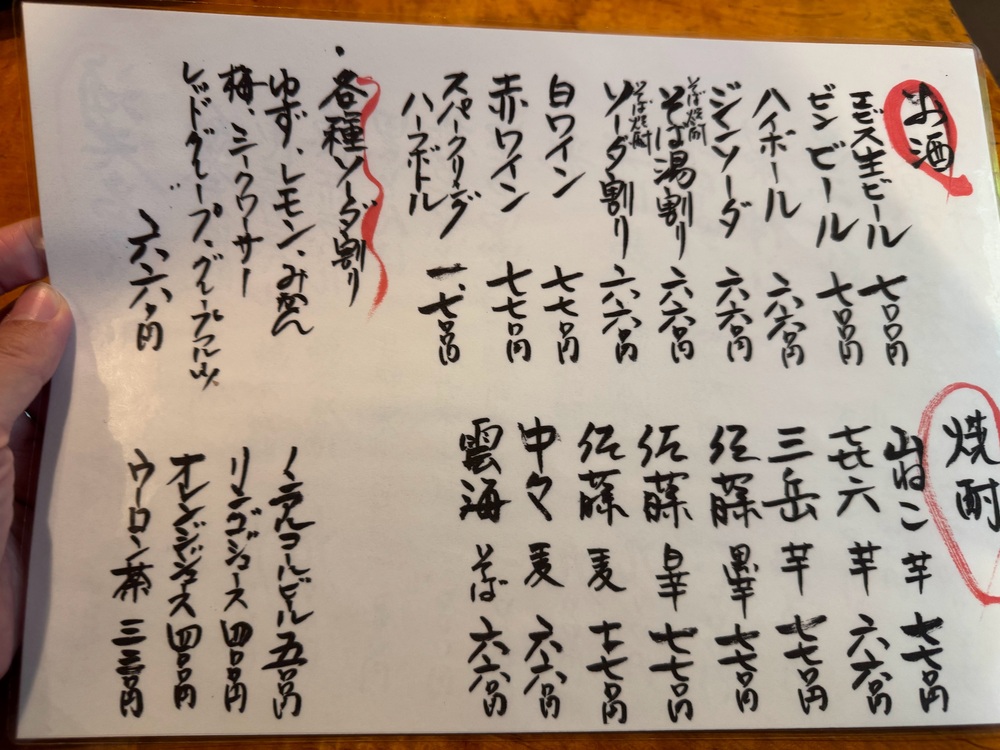 お酒
エビス生ビール 七〇〇円
ビンビール 七〇〇円
ハイボール 六六〇円
ジンソーダ 六六〇円
そば焼酎 そば湯割り 六六〇円
そば焼酎 ソーダ割り 六六〇円
白ワイン 七七〇円
赤ワイン 七七〇円
スパークリング
ハーフボトル 一、七〇〇円
各種ソーダ割り
ゆず、レモン、みかん
梅、シークワーサー
レッドグレープ、グレープフルーツ
六六〇円
焼酎
山ねこ 芋 七七〇円
㐂六 芋 六六〇円
三岳 芋 七七〇円
佐藤 黒芋 七七〇円
佐藤 白芋 七七〇円
佐藤 麦 七七〇円
中々 麦 六六〇円
雲海 そば 六六〇円
ノンアルコールビール 五〇〇円
リンゴジュース 四〇〇円
オレンジジュース 四〇〇円
ウーロン茶 三三〇円